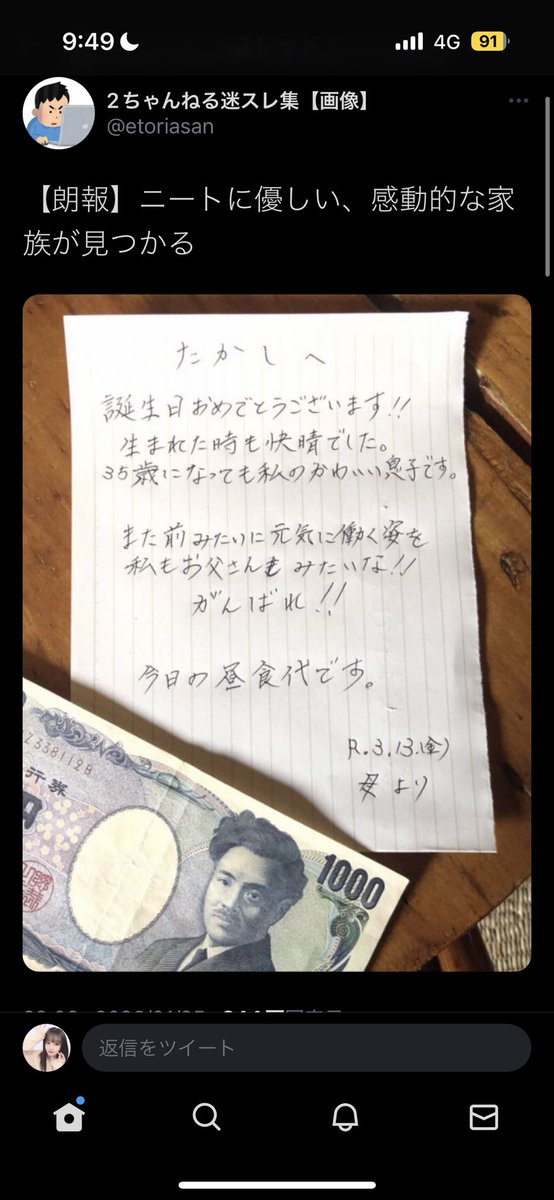 9:49
4G
91
2ちゃんねる迷スレ集【画像】
@etoriasan
【朗報】ニートに優しい、感動的な家
族が見つかる
たかしへ
誕生日おめでとうございます!!
生まれた時も快晴でした。
35歳になっても私のかわいい息子です。
また前みたいに元気に働く姿を
私もお父さんもみたいな!!
がんばれ!!
今日の昼食代です。
R.3.13.(金)
母より
Z338112B
行券
円
1000
返信をツイート